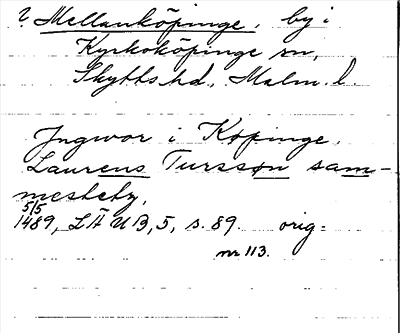 ? Mellanköpinge, by i
Kyrkoköpinge sn,
Skytts hd, Malm. l.
Jngwor i Køpinge,
Laurens Tursson sam-
mesteby,
5/5
1489, LÄUB, 5, s. 89. orig.
nr 113.